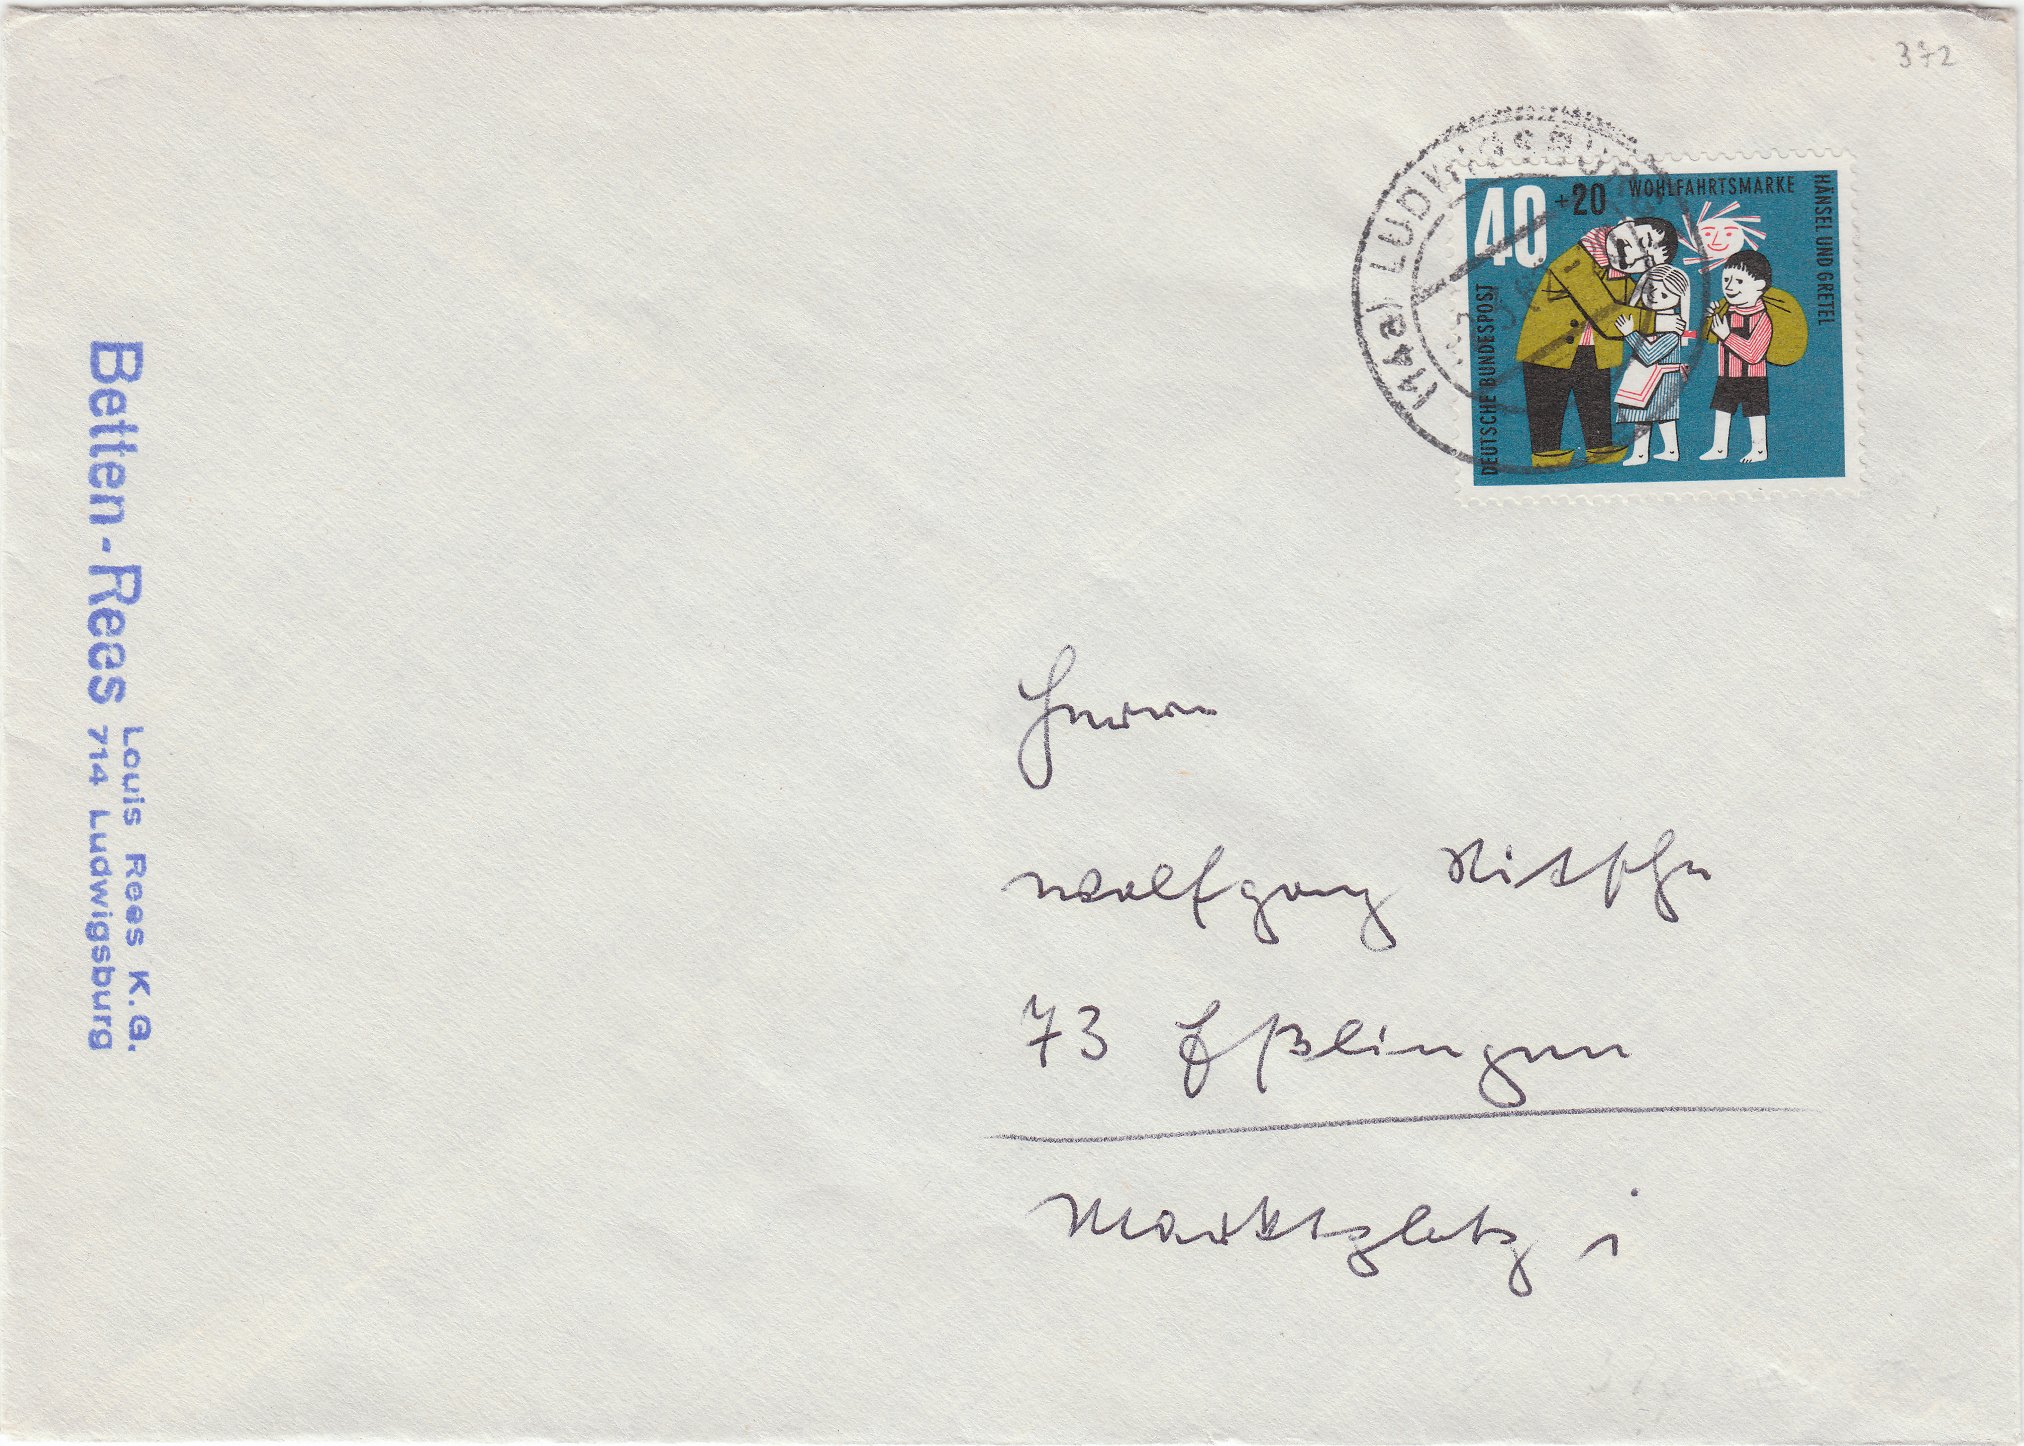 372
(14a) LUDWIGSBURG
40 +20 WOHLFAHRTSMARKE
HÄNSEL UND GRETEL
DEUTSCHE BUNDESPOST
Betten-Rees
Louis Rees K.G.
714 Ludwigsburg
Herrn
Wolfgang Nitsche
73 Eßlingen
Marktplatz 1